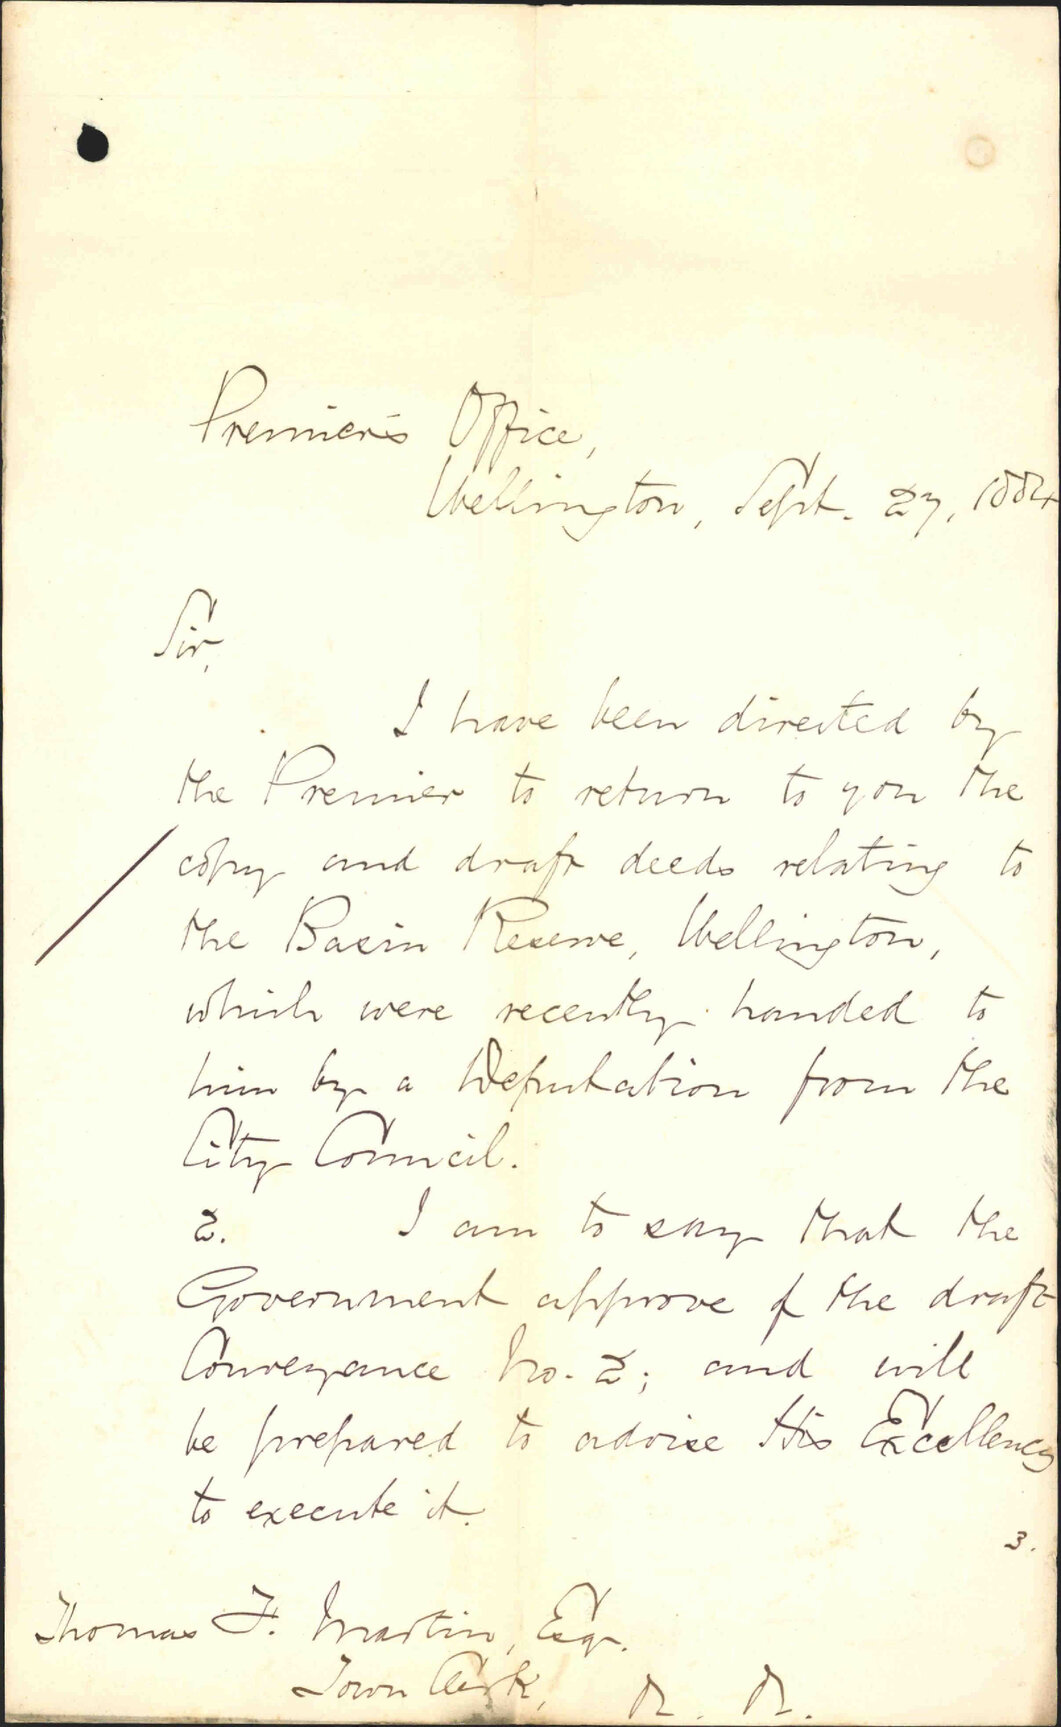 Premier's Office,
Wellington, Sept. 27, 1884
Sir,
I have been directed by
the Premier to return to you the
copy and draft deeds relating to
the Basin Reserve, Wellington,
which were recently handed to
him by a Deputation from the
City Council.
2. I am to say that the
Government approve of the draft
Conveyance No. 2; and will
be prepared to advise His Excellency
to execute it.
3.
Thomas F. Martin, Esq.
Town Clerk,